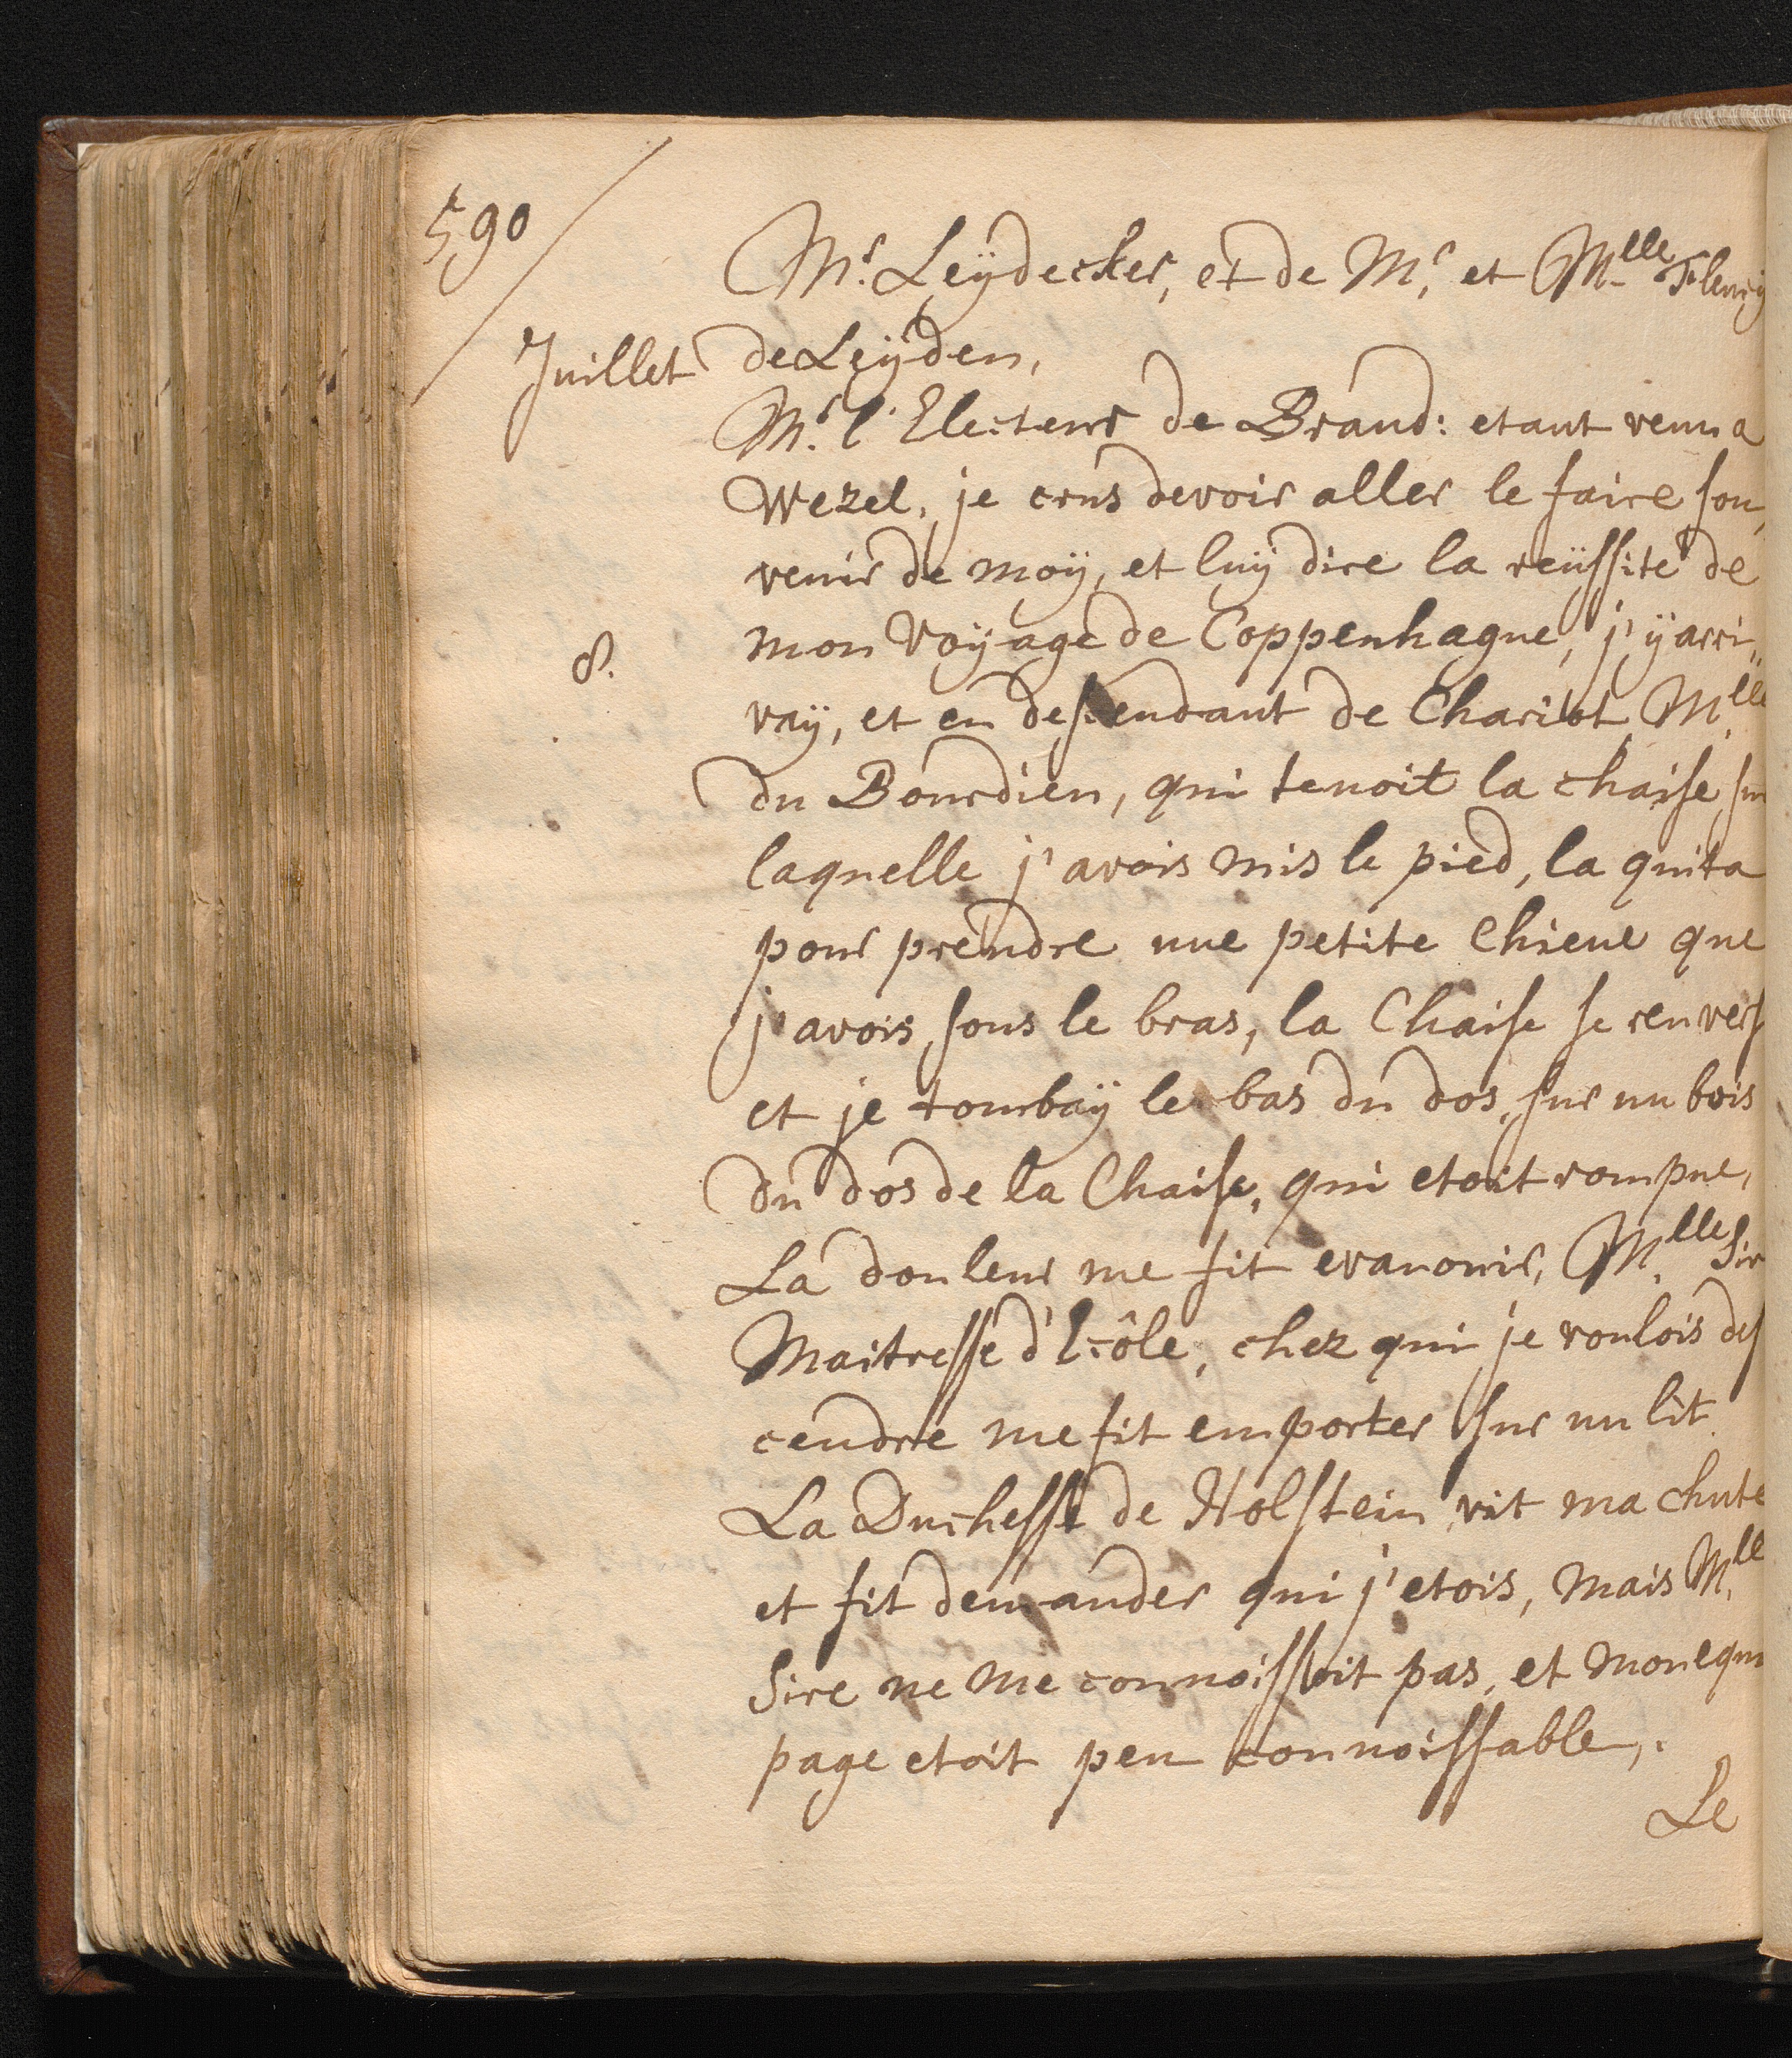 590
Mr. Leÿdecker, et de Mr. et Mlle Fleurÿ
Juillet de Leÿden,
Mr. l'Electeur de Brand: etant venu a
Wezel, je crus devoir aller le faire sou,
venir de moÿ, et luÿ dire la reüssite de
8. mon Voÿage de Coppenhague, j'ÿ arri,,
vaÿ, et en descendant de Chariot Mlle
du Bourdieu, qui tenoit la chaise sur
laquelle j'avois mis le pied, la quita
pour prendre une petite Chiene que
j'avois sous le bras, la Chaise se renvers
et je tombaÿ le bas du dos, sur un bois
du dos de la Chaise, qui etoit rompue,
La douleur me fit evanouir, Mlle Sir
Maitresse d'Ecôle, chez qui je voulois des
cendre me fit emporter sur un lit.
La Duchesse de Holstein vit ma chute
et fit demander qui j'etois, mais Mlle
Sire ne me connoissoit pas, et mon equi
page etoit peu connoissable,.
Le